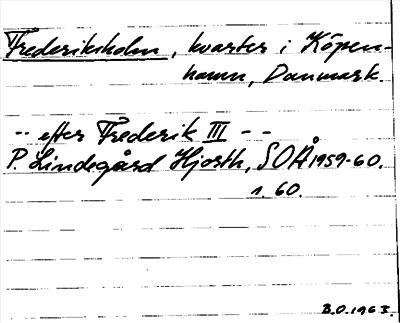 Frederiksholm, kvarter i Köpen-
hamn, Danmark.
-- efter Frederik III --
P. Lindegård Hjorth, SOÅ 1959-60.
s. 60.
B.O. 1963.